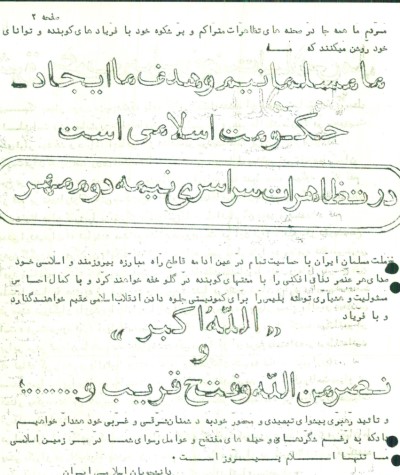 صفحه ۲
مردم ما همه جا در صحنه های تظاهرات متراکم و پر شکوه خود با فریاد های کوبنده و توانای
خود روشن میکنند که
ما مسلمانیم و هدف ما ایجاد
حکومت اسلامی است
در تظاهرات سراسری نیمه دوم مهر
ملت مسلمان ایران با حساسیت تمام در عین ادامه قاطع راه مبارزه پیروزمند و اسلامی خود
صدای هر عنصر نفاق افکنی را با مشتهای کوبنده در گلو خفه خواهند کرد و با کمال احساس
مسئولیت و هشیاری توطئه پلیس را برای کمونیستی جلوه دادن انقلاب اسلامی عقیم خواهند گذارد
و با فریاد
« الله اکبر »
و
نصر من الله و فتح قریب و .......
و تائید رهبری پیشوای تبعیدی و محصور خود به دشمنان شرقی و غربی خود هشدار خواهیم
داد که به رغم و حیله های مفتضح و عوامل رسوای شما در سرزمین اسلامی
ما تنها اسلام پیروز است .
دانشجویان اسلامی ایران